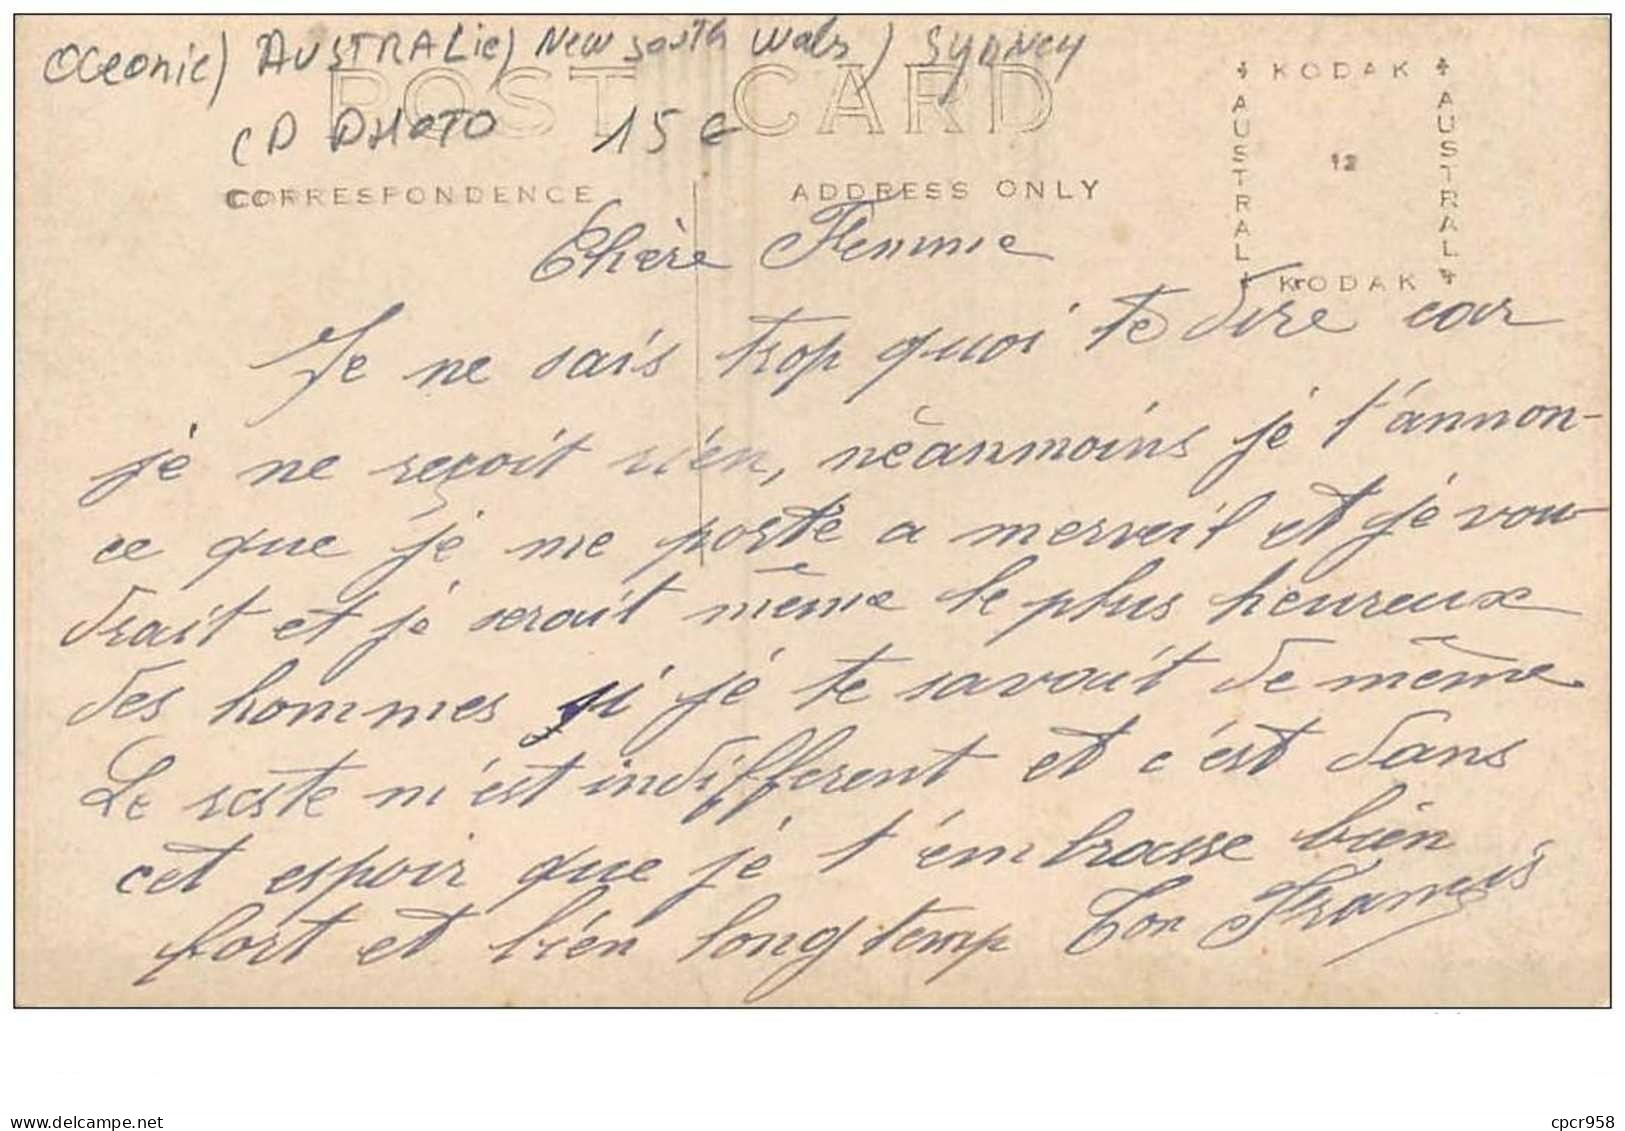 Oceanie) AUSTRALie) New South Wales) SYDNEY
POST CARD
CP PHOTO 15 €
CORRESPONDENCE
ADDRESS ONLY
KODAK
AUSTRAL
12
AUSTRAL
KODAK
Chère Femme
Je ne sais trop quoi te dire car
je ne reçoit rien, néanmoins je t'annon-
ce que je me porte a merveil et je vou-
drait et je serait même le plus heureux
des hommes si je te savait de même
Le reste m'est indifferent et c'est dans
cet espoir que je t'embrasse bien
fort et bien longtemp Ton Francis
delcampe.net
cpcr958